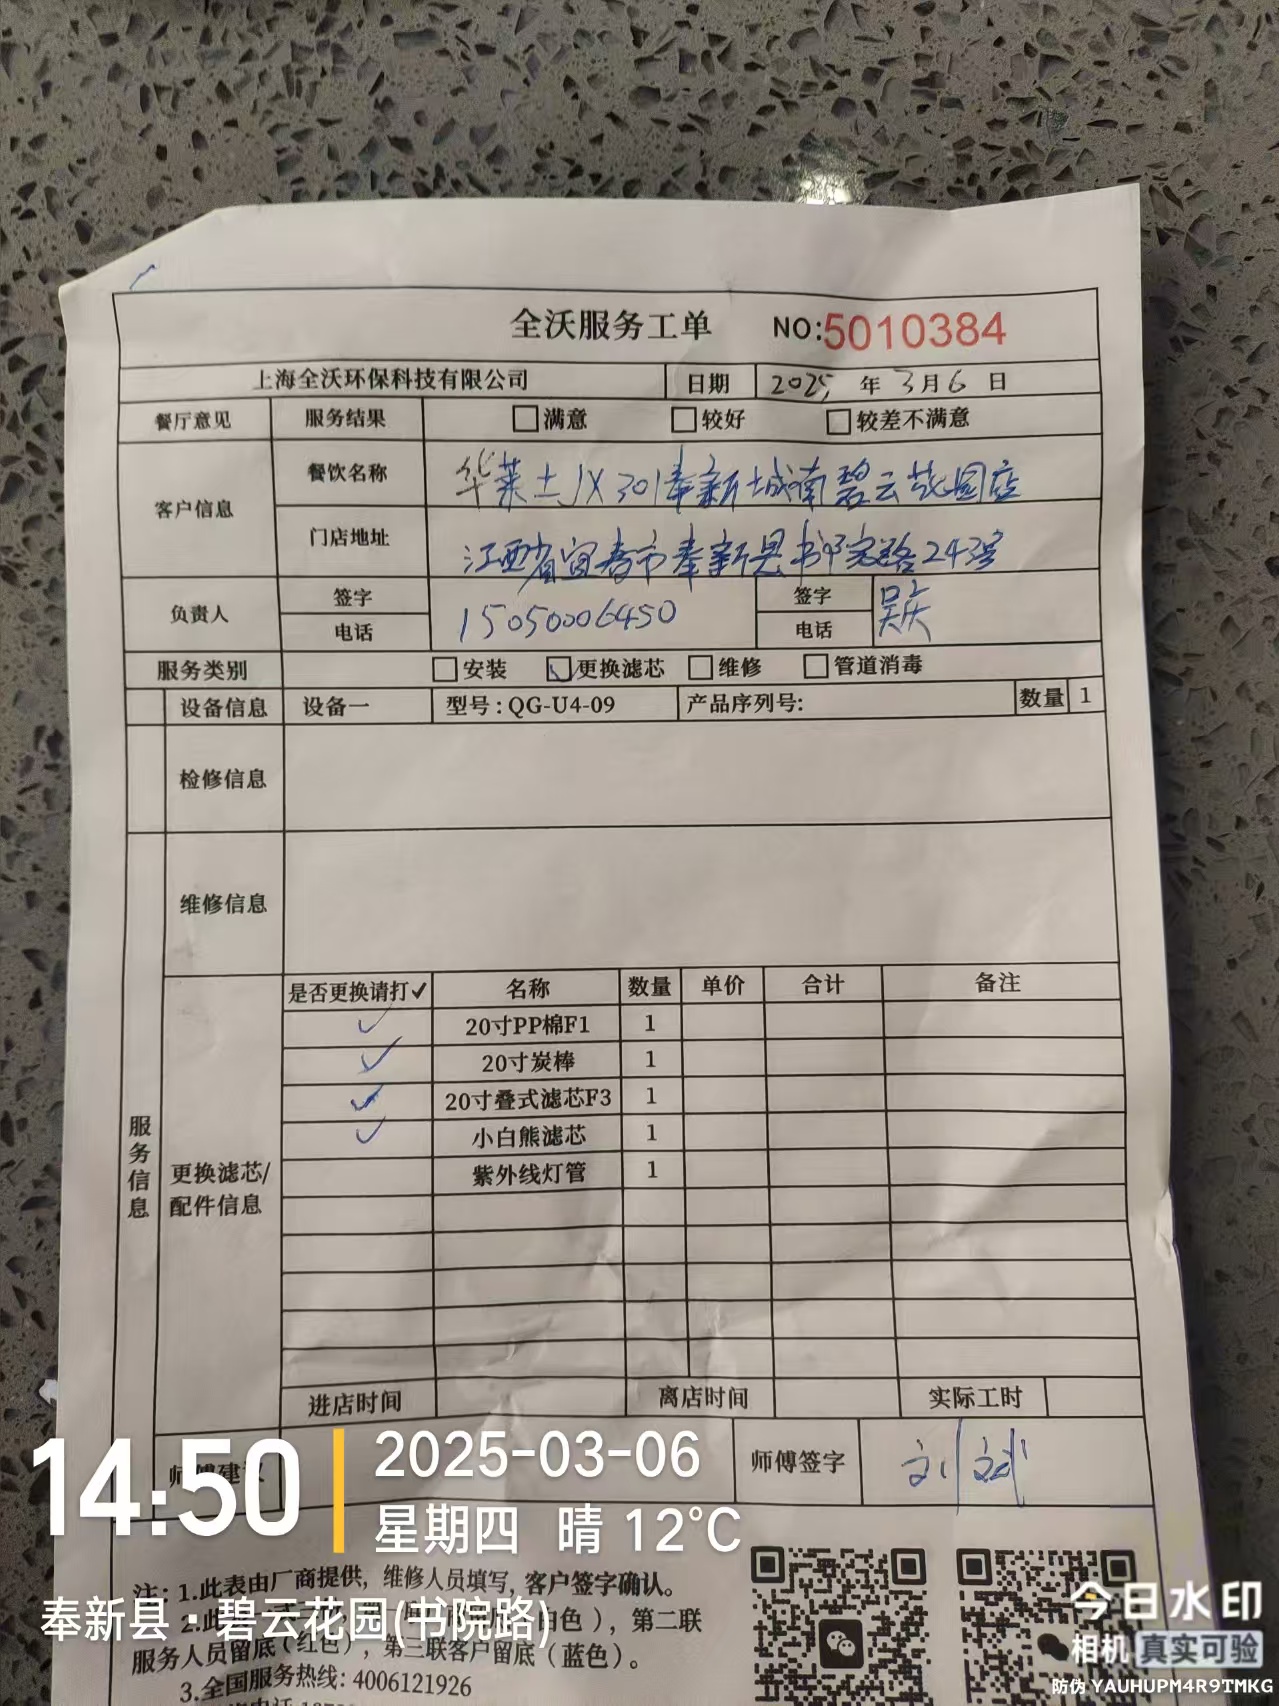 全沃服务工单 NO:5010384
上海全沃环保科技有限公司 日期 2025 年 3月 6 日
餐厅意见 服务结果 满意 较好 较差不满意
客户信息 餐饮名称 华莱士JX301奉新城南碧云花园店
门店地址 江西省宜春市奉新县书院路24号
负责人 签字 电话 15050006450 签字 电话
服务类别 安装 更换滤芯 维修 管道消毒
设备信息 设备一 型号:QG-U4-09 产品序列号: 数量 1
检修信息
维修信息
服务信息
更换滤芯/
配件信息
是否更换请打✓ 名称 数量 单价 合计 备注
✓ 20寸PP棉F1 1
✓ 20寸炭棒 1
✓ 20寸叠式滤芯F3 1
✓ 小白熊滤芯 1
紫外线灯管 1
进店时间 离店时间 实际工时
师傅签字 刘斌
14:50 2025-03-06
星期四 晴 12°C
奉新县·碧云花园(书院路)
注: 1.此表由厂商提供, 维修人员填写, 客户签字确认。
2.此 白色), 第二联
服务人员留底(红色), 第三联客户留底(蓝色)。
3.全国服务热线: 4006121926
今日水印
相机 真实可验
防伪 YAUHUPM4R9TMKG